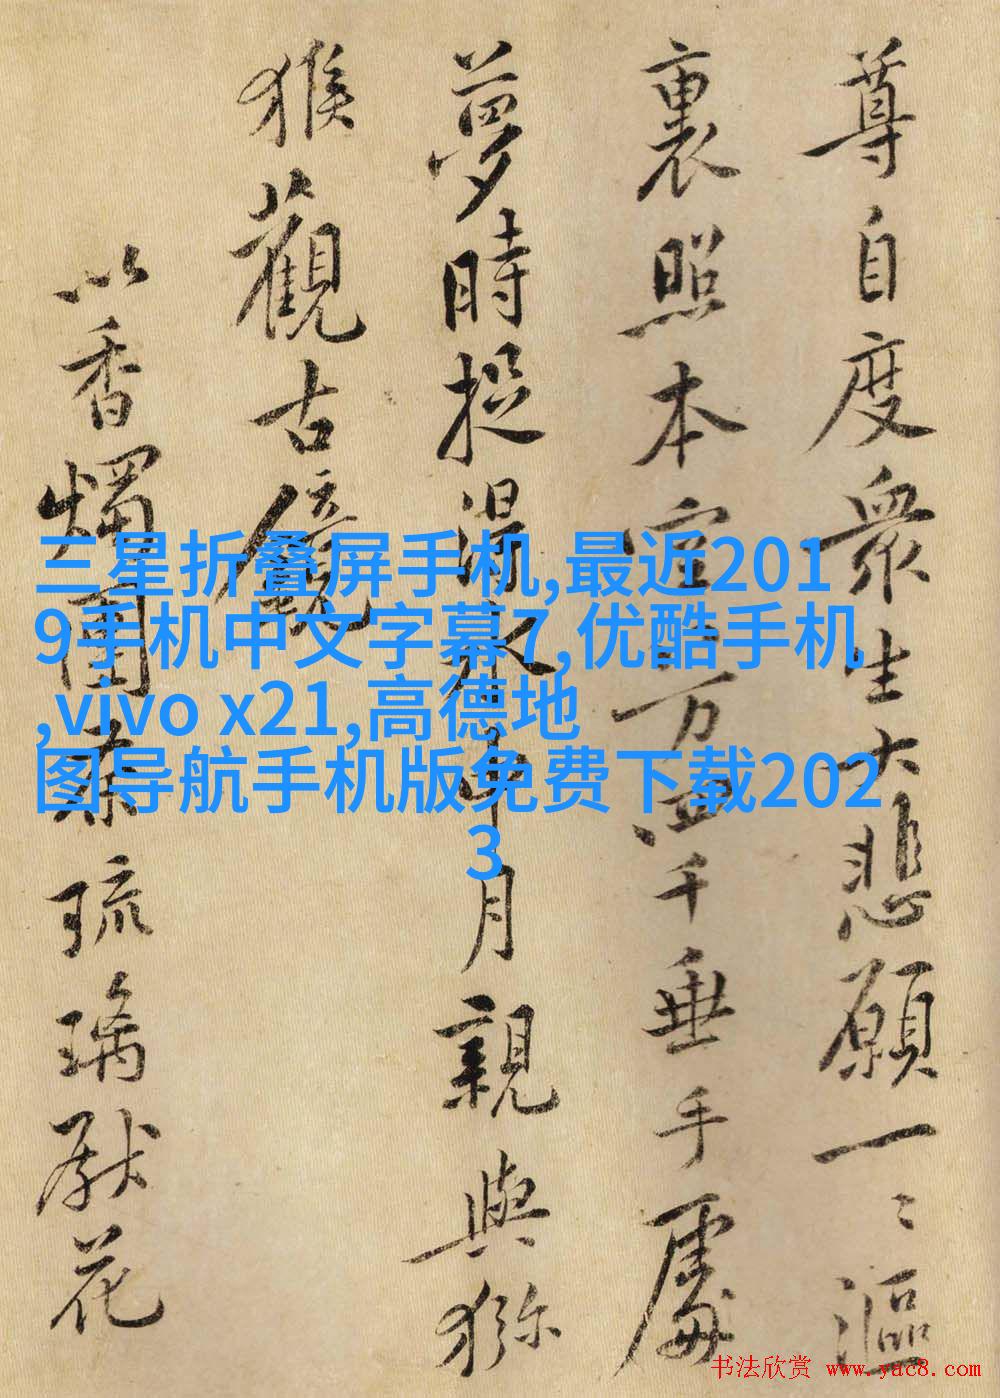 尊自度衆生大悲願一々漚
裏照本空万四千垂手處
夢時捉得水中月親與獼
猴觀古鏡
以香燭團茶琉璃獻花
三星折叠屏手机,最近201
9手机中文字幕7,优酷手机
,vivo x21,高德地
图导航手机版免费下载202
3
书法欣赏 www.yac8.com